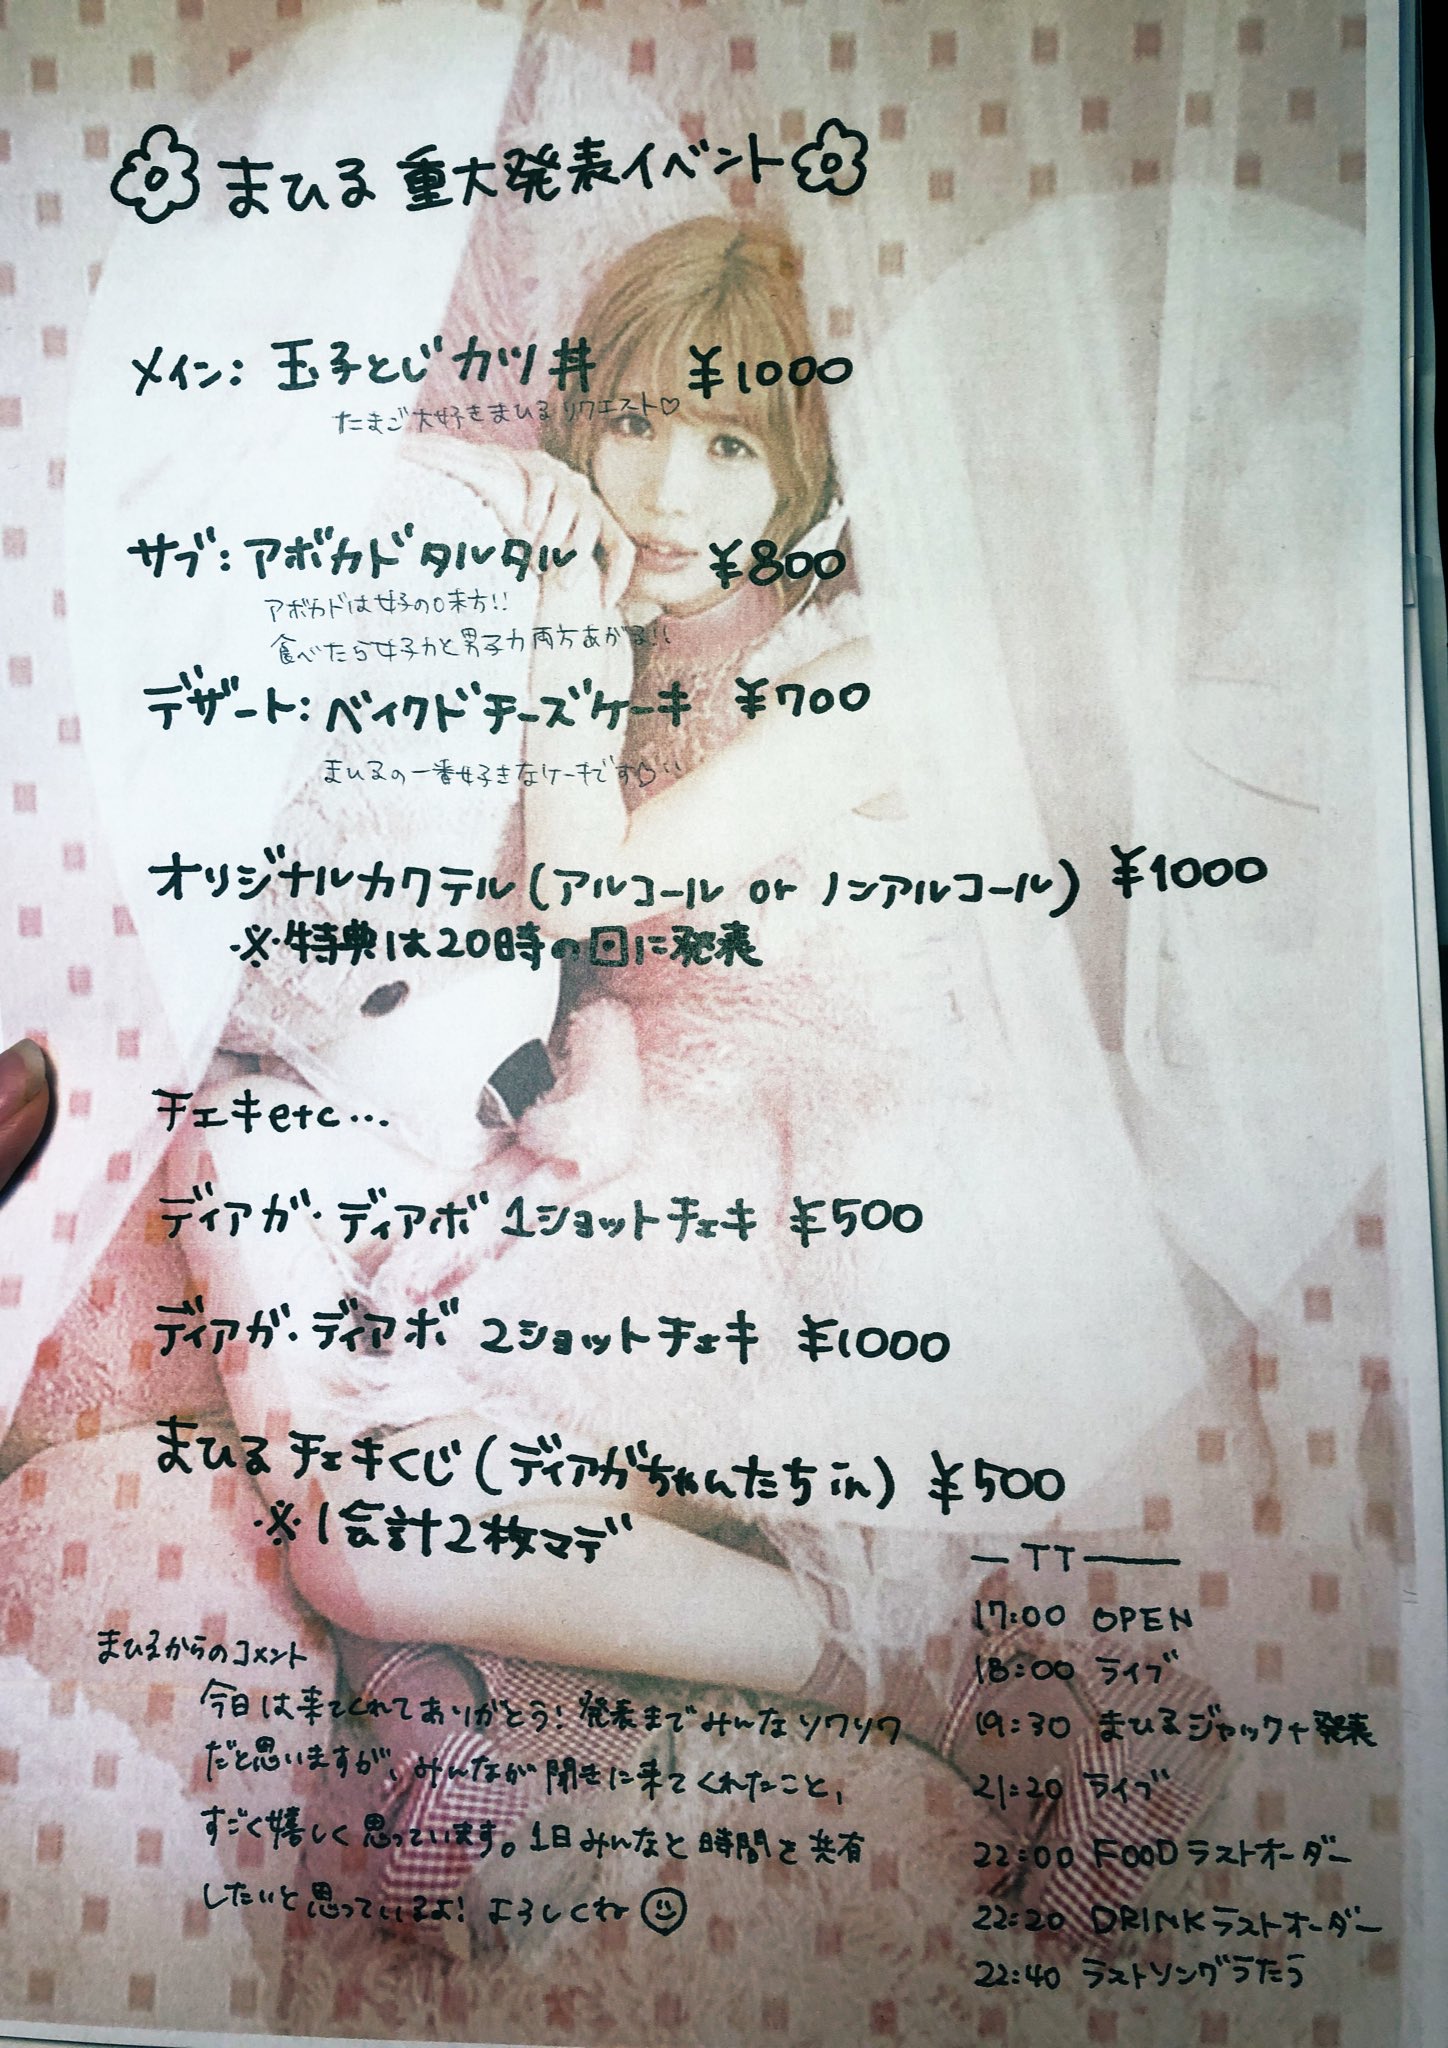 まひる 重大発表イベント
メイン: 玉子とじカツ丼 ¥1000
たまご大好きまひるリクエスト♡
サブ: アボカドタルタル ¥800
アボカドは女子の味方!!
食べたら女子力と男子力両方あがる!!
デザート: ベイクドチーズケーキ ¥700
まひるの一番好きなケーキです♡
オリジナルカクテル(アルコール or ノンアルコール) ¥1000
※特典は20時の回に発表
チェキetc...
ディアガ・ディアボ 1ショットチェキ ¥500
ディアガ・ディアボ 2ショットチェキ ¥1000
まひるチェキくじ(ディアガちゃんたちin) ¥500
※1会計2枚マデ
まひるからのコメント
今日は来てくれてありがとう! 発表までみんなソワソワ
だと思いますが、みんなが聞きに来てくれたこと、
すごく嬉しく思っています。1日みんなと時間を共有
したいと思っているよ! よろしくね
TT
17:00 OPEN
18:00 ライブ
19:30 まひるジャック+発表
21:20 ライブ
22:00 FOODラストオーダー
22:20 DRINKラストオーダー
22:40 ラストソングうたう